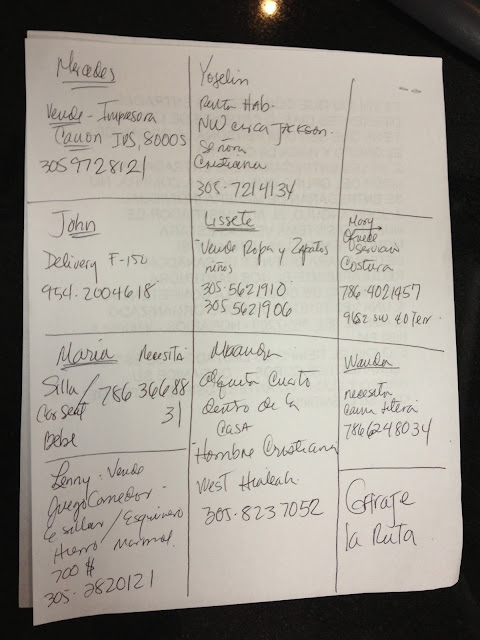 Mercedes
Vende - Impresora
Canon IPS, 8000S
305 972 8121
Yoselin
Renta Hab.
NW cerca JACKSON.
Señora
Cristiana
305-7214134
John
Delivery F-150
954-2004618
Lissete
Vende Ropa y Zapatos
niños
305-5621910
305 5621906
Mary
Ofrece
servicio
Costura
786-4021457
9652 SW 40 Terr.
Maria Necesita
Silla / 786 36688
Car Seat 31
Bebe
alquila Cuarto
dentro de la
CASA
Hombre Cristiano
West Hialeah
305-8237052
Wanda
necesita
cama litera
786 6248034
Lenny - Vende
Juego Comedor -
6 sillas / Esquinero
Hierro Marmol.
700 $
305-2820121
Garaje
la Ruta